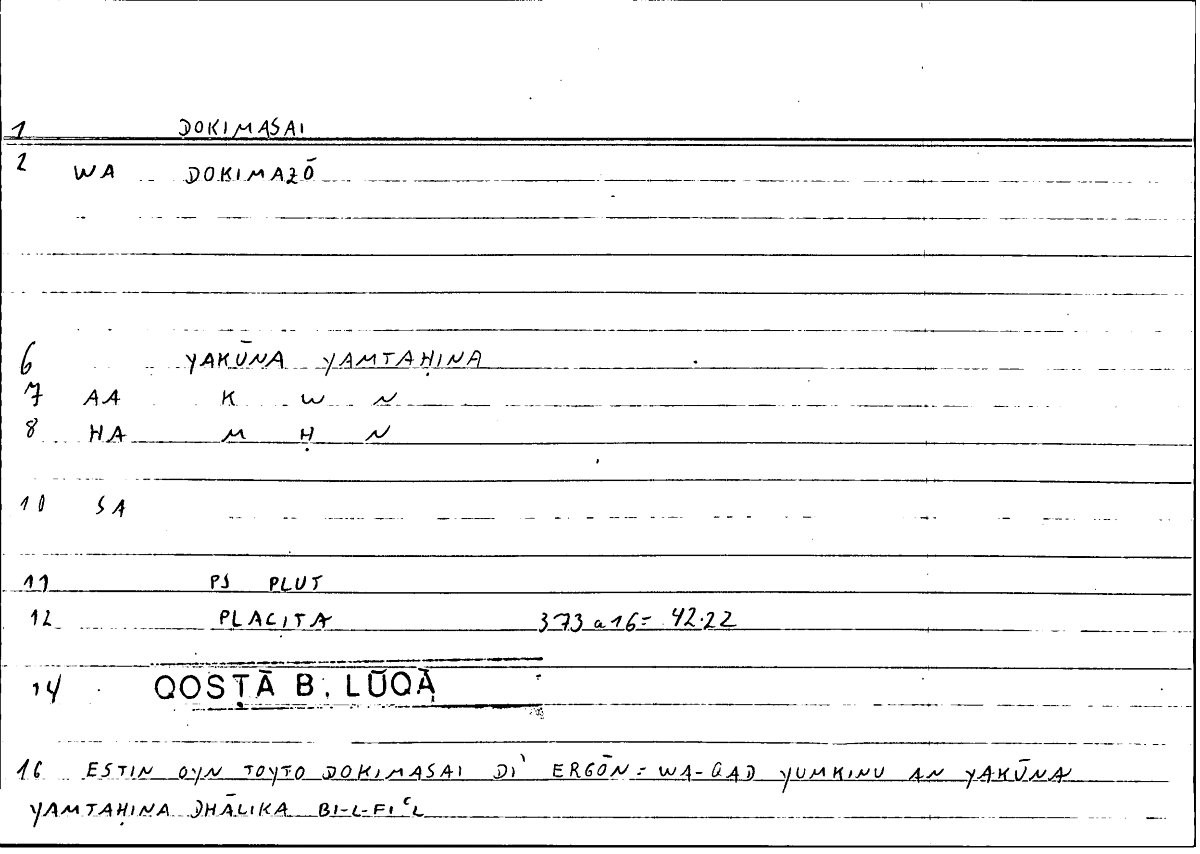 1 DOKIMASAI
2 WA DOKIMAZŌ
6 YAKŪNA YAMTAḤINA
7 AA K W N
8 HA M Ḥ N
10 SA
11 PS PLUT
12 PLACITA 373a16= 42.22
14 QOSṬĀ B. LŪQĀ
16 ESTIN OYN TOYTO DOKIMASAI DI' ERGŌN = WA-QAD YUMKINU AN YAKŪNA
YAMTAḤINA DHĀLIKA BI-L-FIʿL